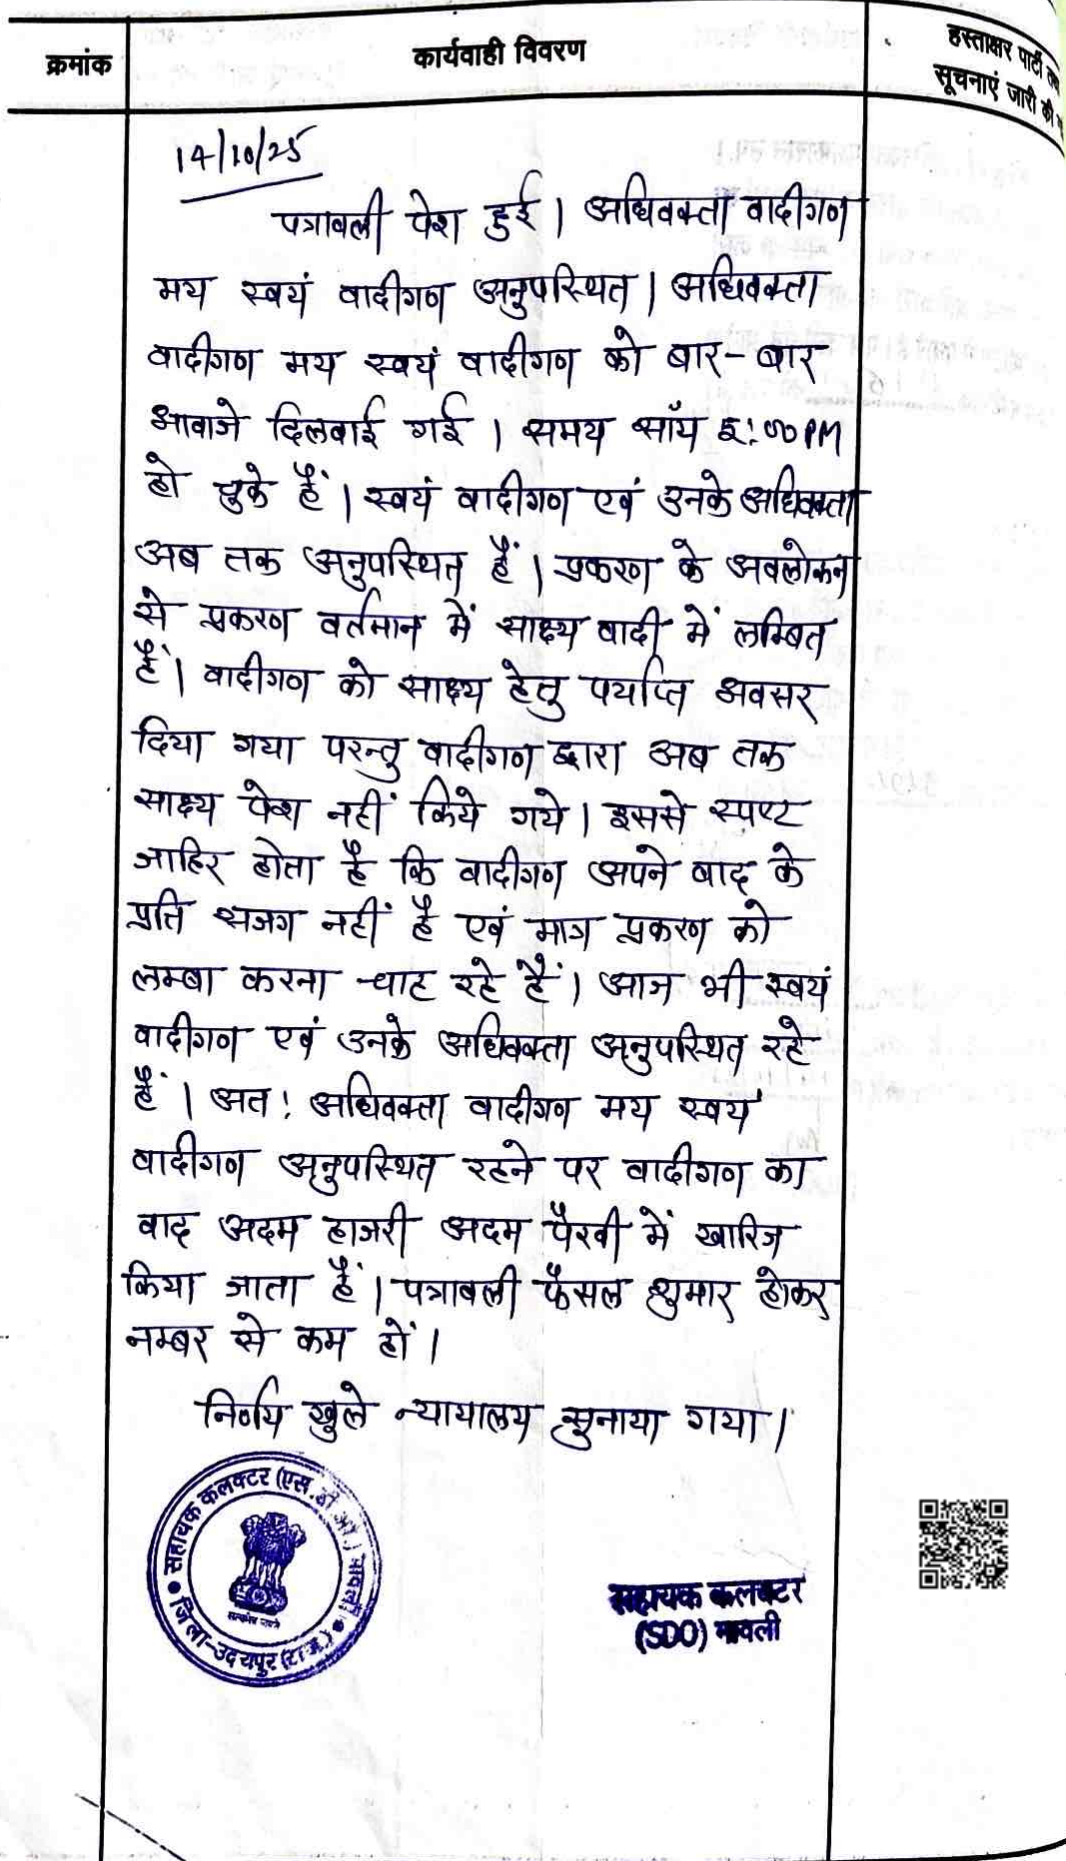 क्रमांक
कार्यवाही विवरण
हस्ताक्षर पार्टी
सूचनाएं जारी की
14/10/25
पत्रावली पेश हुई। अधिवक्ता वादीगण
मय स्वयं वादीगण अनुपस्थित। अधिवक्ता
वादीगण मय स्वयं वादीगण को बार-बार
आवाजे दिलवाई गई। समय सॉय 5:00 PM
हो चुके हैं। स्वयं वादीगण एवं उनके अधिवक्ता
अब तक अनुपस्थित हैं। प्रकरण के अवलोकन
से प्रकरण वर्तमान में साक्ष्य वादी में लम्बित
हैं। वादीगण को साक्ष्य हेतु पर्याप्त अवसर
दिया गया परन्तु वादीगण द्वारा अब तक
साक्ष्य पेश नहीं किये गये। इससे स्पष्ट
जाहिर होता है कि वादीगण अपने वाद के
प्रति सजग नहीं है एवं मात्र प्रकरण को
लम्बा करना चाह रहे हैं। आज भी स्वयं
वादीगण एवं उनके अधिवक्ता अनुपस्थित रहे
हैं। अत: अधिवक्ता वादीगण मय स्वयं
वादीगण अनुपस्थित रहने पर वादीगण का
वाद अदम हाजरी अदम पैरवी में खारिज
किया जाता हैं। पत्रावली फैसल शुमार होकर
नम्बर से कम हों।
निर्णय खुले न्यायालय सुनाया गया।
सहायक कलक्टर (एस.डी.ओ.) मावली
जिला-उदयपुर (राज.)
सत्यमेव जयते
सहायक कलक्टर
(SDO) मावली